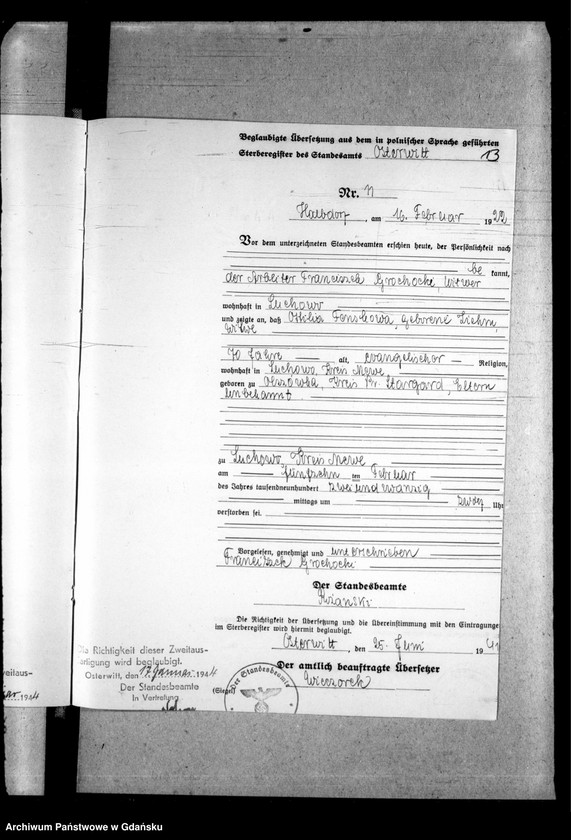 Beglaubigte Übersetzung aus dem in polnischer Sprache geführten
Sterberegister des Standesamts Osterwitt 13
Nr. 11
Halbdorf, am 16. Februar 1922
Vor dem unterzeichneten Standesbeamten erschien heute, der Persönlichkeit nach
be kannt,
der Arbeiter Franciszek Grochocki, Witwer
wohnhaft in Luchowo
und zeigte an, daß Ottilia geborene
Witwe
70 Jahre alt, evangelischer Religion,
wohnhaft in Luchowo, Kreis Mewe,
geboren zu Kreis Pr. Stargard, Eltern
unbekannt
zu Luchowo, Kreis Mewe
am fünfzehn ten Februar
des Jahres tausendneunhundert zwei und zwanzig
mittags um zwölf Uhr
verstorben sei.
Vorgelesen, genehmigt und unterschrieben
Franciszek Grochocki
Der Standesbeamte
Die Richtigkeit der Übersetzung und die Übereinstimmung mit den Eintragungen
im Sterberegister wird hiermit beglaubigt.
Osterwitt, den 25. Juni 1941
Der amtlich beauftragte Übersetzer
(Siegel) Wieczorek
Der Standesbeamte
Richtigkeit dieser Zweitaus-
fertigung wird beglaubigt.
Osterwitt, den 17. Januar 1944
Der Standesbeamte
In Vertretung
1944
Archiwum Państwowe w Gdańsku